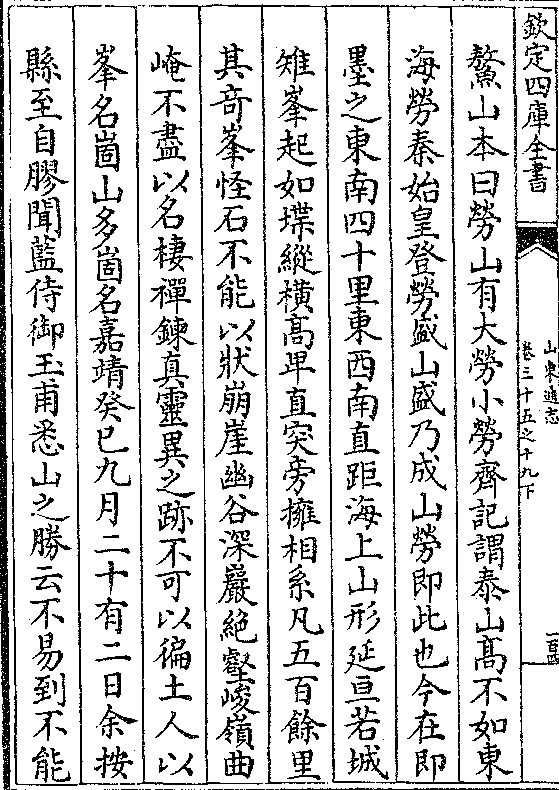 欽定四庫全書
山東通志
卷三十五之十九下
鰲山本曰勞山有大勞小勞齊記謂泰山髙不如東
海勞秦始皇登勞盛山盛乃成山勞即此也今在即
墨之東南四十里東西南直距海上山形延亘若城
雉峯起如堞縱横髙卑直突旁擁相系凡五百餘里
其竒峯怪石不能以狀崩崖幽谷深巖絶壑峻嶺曲
崦不盡以名棲禪鍊真靈異之跡不可以徧土人以
峯名崮山多崮名嘉靖癸巳九月二十有二日余按
縣至自膠聞藍侍御玉甫悉山之勝云不易到不能